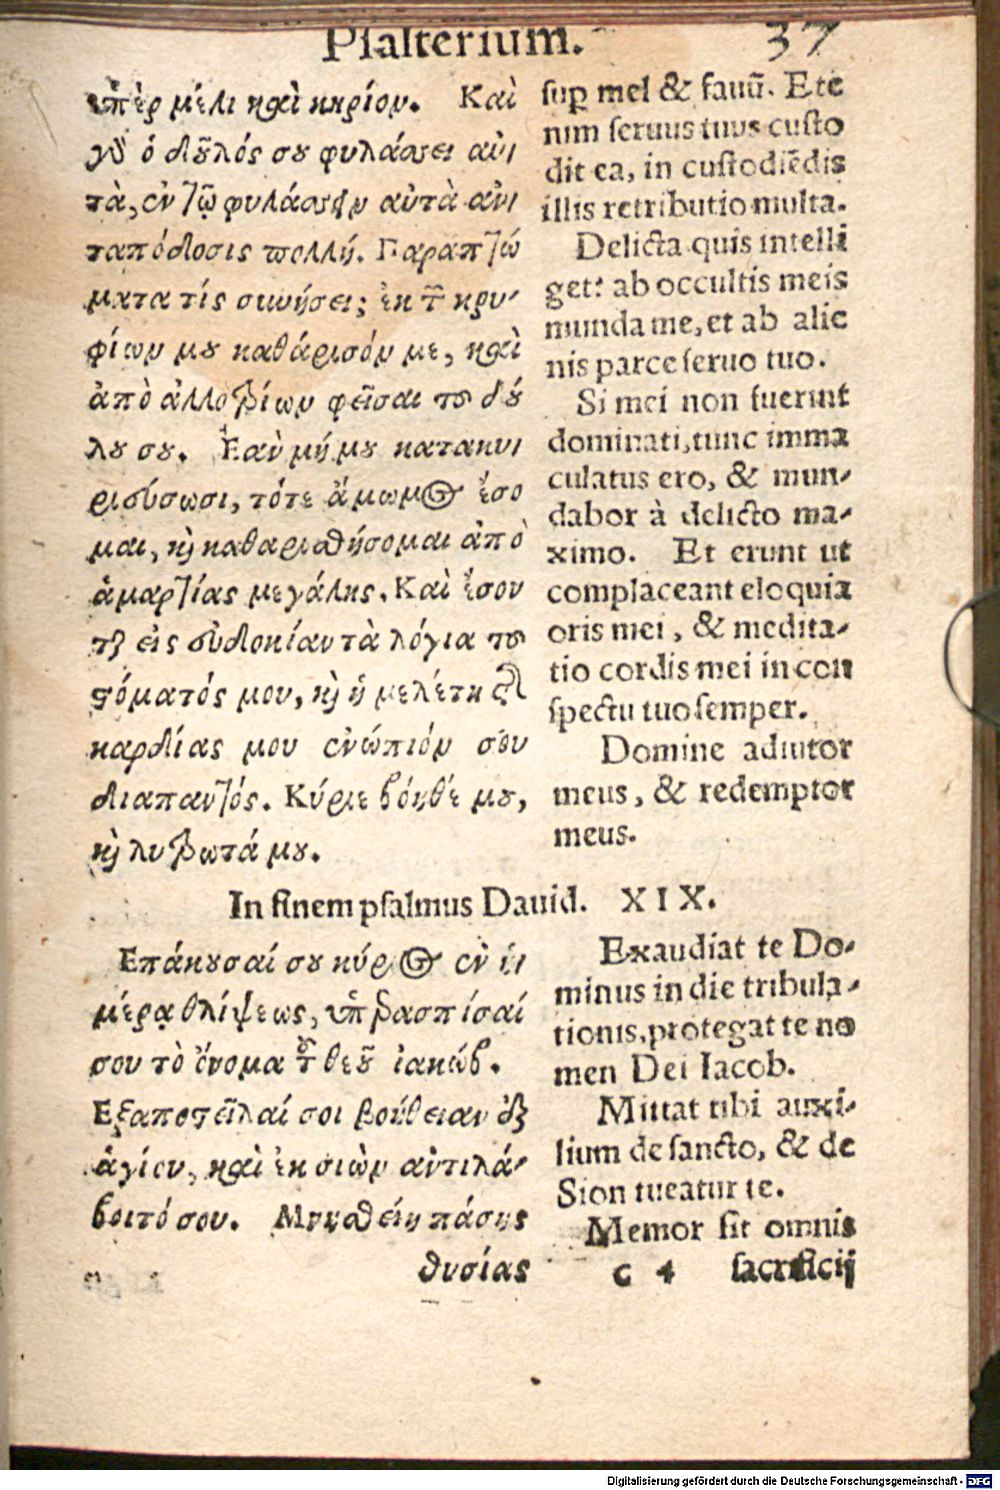 Psalterium. 37
ὑπὲρ μέλι καὶ κηρίον. Καὶ
γὸ ὁ δοῦλός σου φυλάσσει αὐ-
τὰ, ἐν τῷ φυλάσσειν αὐτὰ ἀν-
ταπόδοσις πολλή. Παραπτώ
ματα τίς συνήσει; ἐκ τῶν κρυ-
φίων μου καθάρισόν με, καὶ
ἀπὸ ἀλλοτρίων φεῖσαι τοῦ δού
λου σου. Ἐὰν μή μου κατακυ-
ριεύσωσι, τότε ἄμωμος ἔσο
μαι, καὶ καθαρισθήσομαι ἀπὸ
ἁμαρτίας μεγάλης. Καὶ ἔσον
ται εἰς εὐδοκίαν τὰ λόγια τοῦ
στόματός μου, καὶ ἡ μελέτη τῆς
καρδίας μου ἐνώπιόν σου
διαπαντός. Κύριε βοηθέ μου,
καὶ λυτρωτά μου.
sup mel & fauū. Ete
nim seruus tuus custo
dit ea, in custodiēdis
illis retributio multa.
Delicta quis intelli
get? ab occultis meis
munda me, et ab alie
nis parce seruo tuo.
Si mei non fuerint
dominati, tunc imma
culatus ero, & mun-
dabor à delicto ma-
ximo. Et erunt ut
complaceant eloquia
oris mei, & medita-
tio cordis mei in con
spectu tuo semper.
Domine adiutor
meus, & redemptor
meus.
In finem psalmus Dauid. XIX.
Επάκουσαί σου κύριος ἐν ἡ-
μέρᾳ θλίψεως, ὑπερασπίσαί
σου τὸ ὄνομα τοῦ θεοῦ ἰακώβ.
Εξαποστεῖλαί σοι βοήθειαν ἐξ
ἁγίου, καὶ ἐκ σιὼν ἀντιλά-
βοιτό σου. Μνησθείη πάσης
θυσίας
Exaudiat te Do-
minus in die tribula-
tionis, protegat te no
men Dei Iacob.
Mittat tibi auxi-
lium de sancto, & de
Sion tueatur te.
Memor sit omnis
c 4 sacrificij
Digitalisierung gefördert durch die Deutsche Forschungsgemeinschaft - DFG